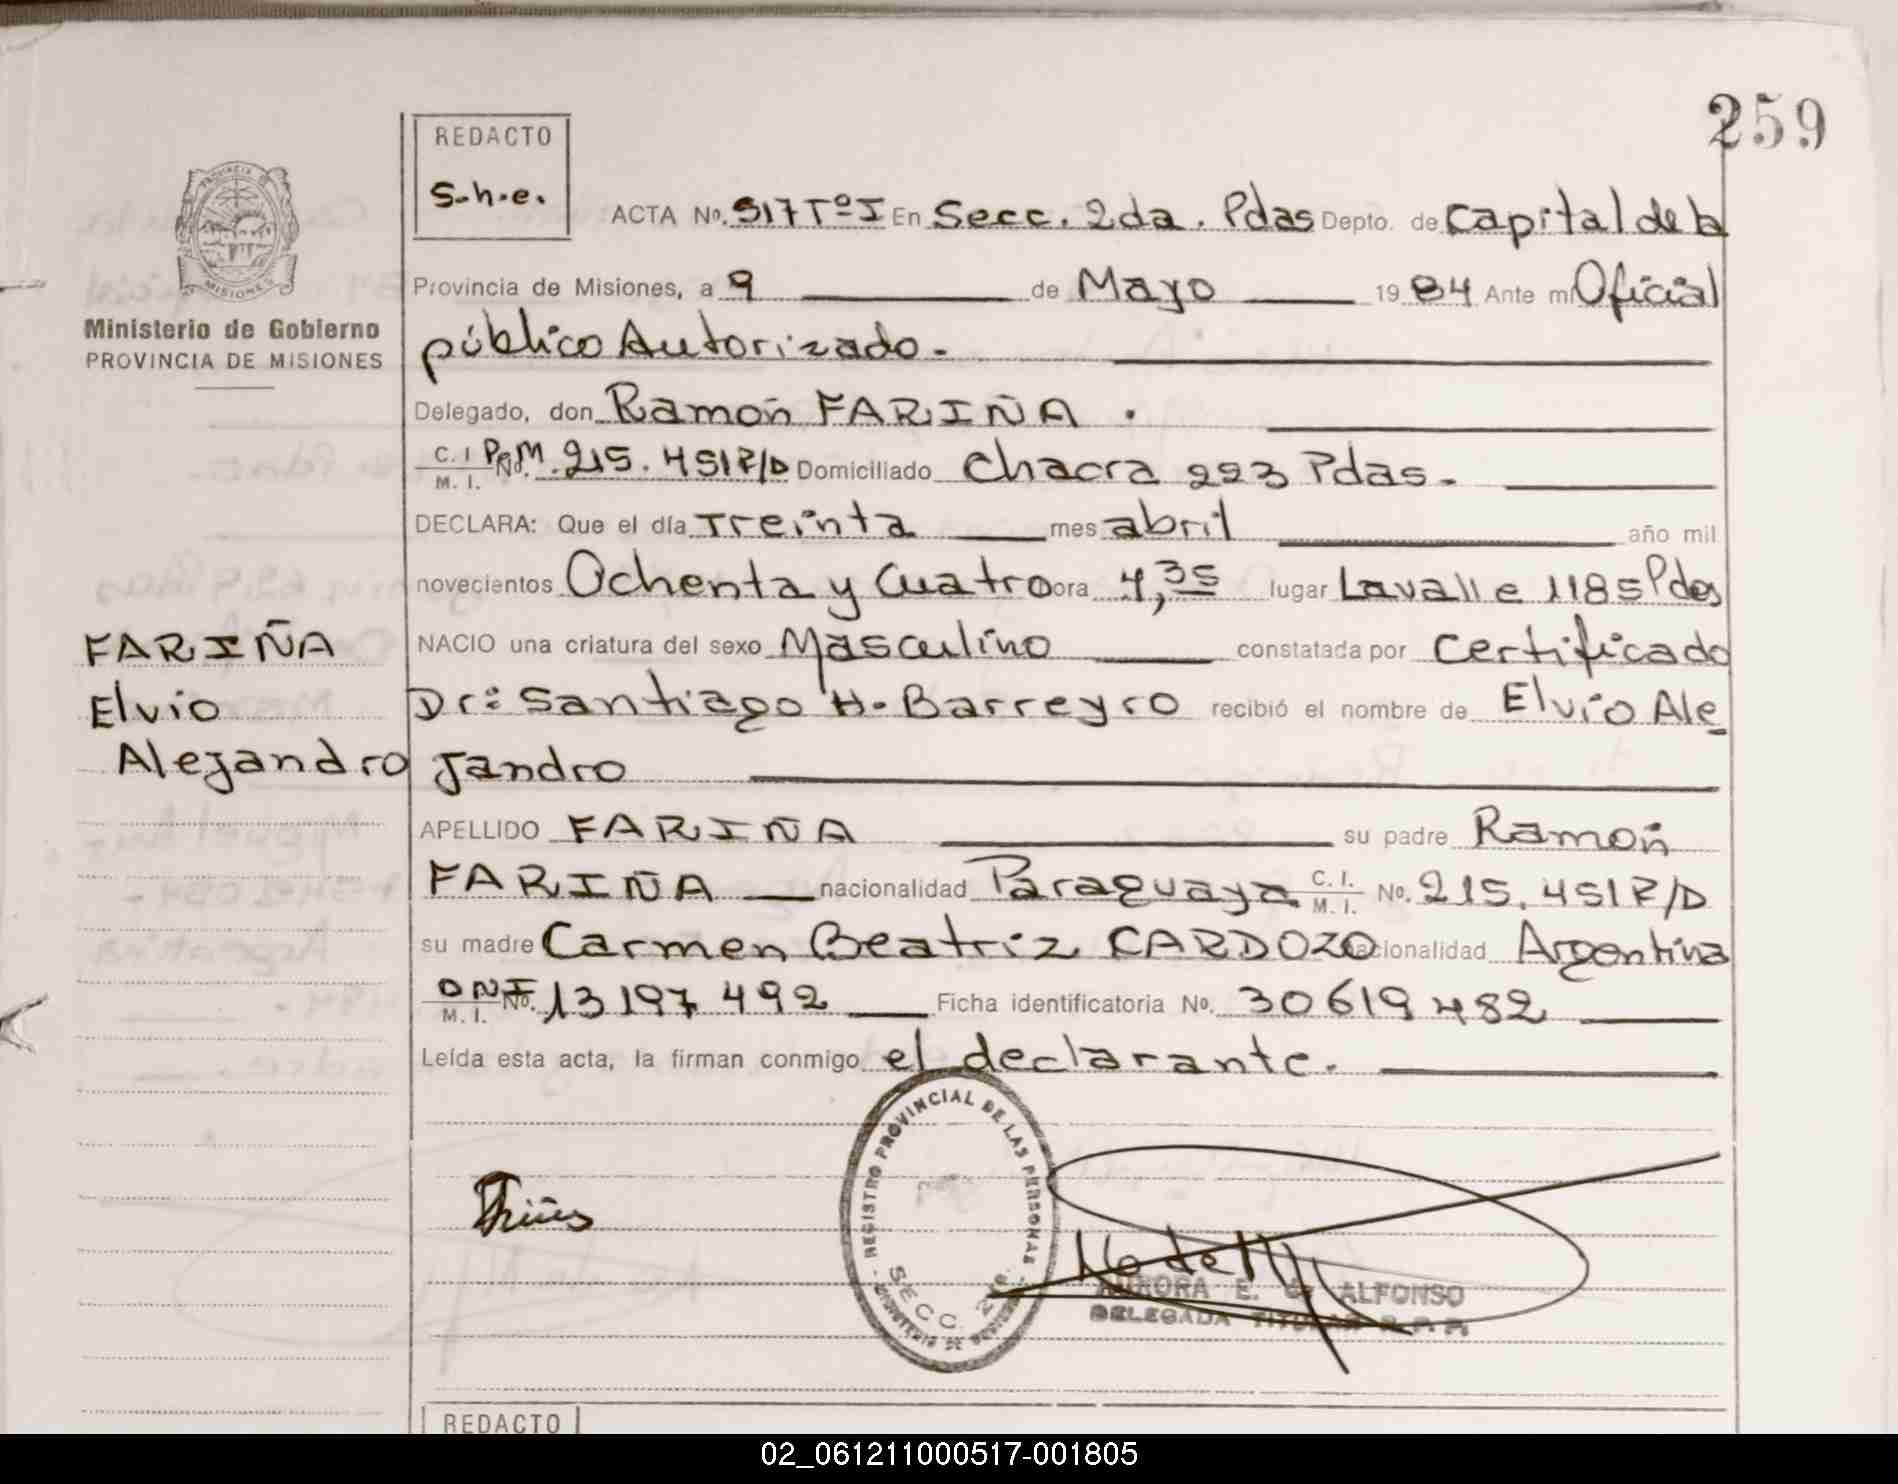 259
REDACTO
S.h.e.
ACTA No. 517 Tº I En Secc. 2da. Pdas Depto. de Capital de la
Provincia de Misiones, a 9 de Mayo 1984 Ante mi Oficial
público Autorizado.
Delegado, don Ramón FARIÑA.
C.I. M.I. No. 215.451 R/D Domiciliado Chacra 223 Pdas.
DECLARA: Que el día Treinta mes abril año mil
novecientos Ochenta y Cuatro ora 4,35 lugar Lavalle 1185 Pdas
NACIO una criatura del sexo Masculino constatada por Certificado
Dr: Santiago H. Barreyro recibió el nombre de Elvio Ale
jandro
APELLIDO FARIÑA su padre Ramón
FARIÑA nacionalidad Paraguaya C.I. M.I. No. 215.451 R/D
su madre Carmen Beatriz CARDOZO nacionalidad Argentina
DNI M.I. No. 13197492 Ficha identificatoria No. 30619482
Leída esta acta, la firman conmigo el declarante.
PROVINCIA DE
MISIONES
Ministerio de Gobierno
PROVINCIA DE MISIONES
FARIÑA
Elvio
Alejandro
REGISTRO PROVINCIAL DE LAS PERSONAS
SECC. 2da.
AURORA E. ALFONSO
DELEGADA TITULAR R.P.P.
REDACTO
02_061211000517-001805